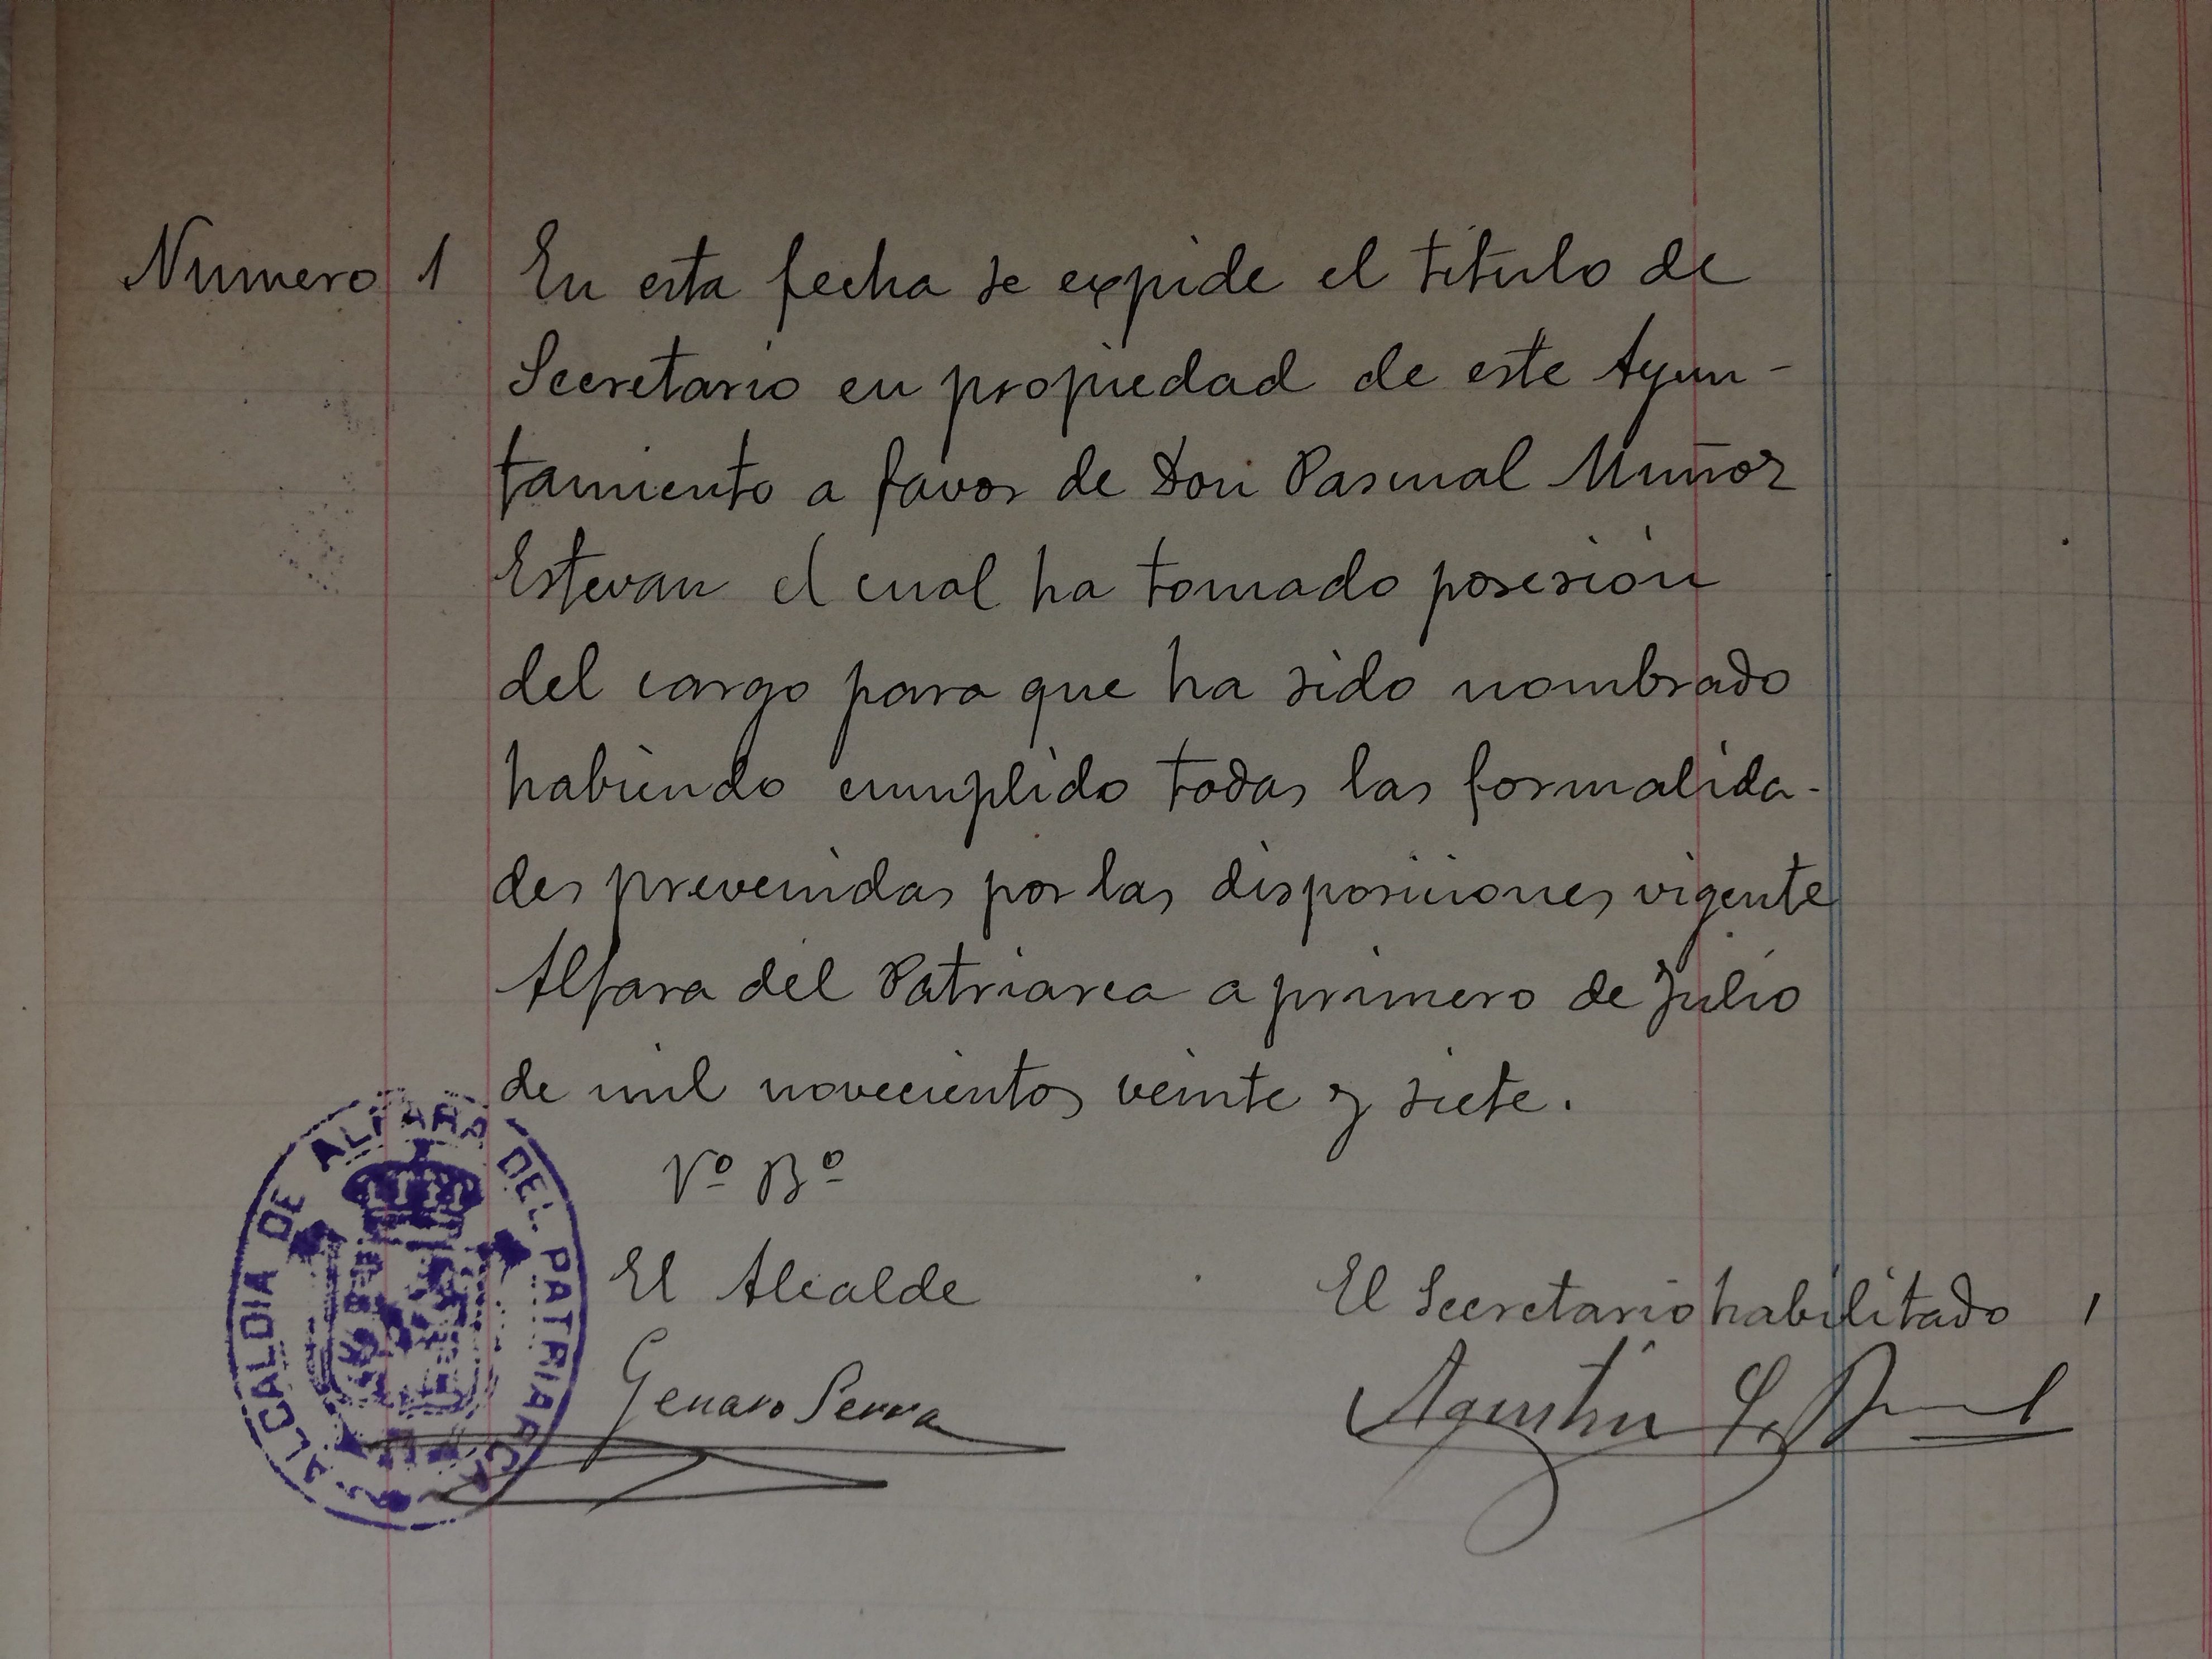 Numero 1 En esta fecha se expide el titulo de
Secretario en propiedad de este Ayun-
tamiento a favor de Don Pascual Muñoz
Estevan el cual ha tomado posesión
del cargo para que ha sido nombrado
habiendo cumplido todas las formalida-
des prevenidas por las disposiciones vigente
Alfara del Patriarca a primero de Julio
de mil novecientos veinte y siete.
Vº Bº
El Alcalde
El Secretario habilitado
Genaro Serra
Agustín
ALCALDIA DE ALFARA DEL PATRIARCA